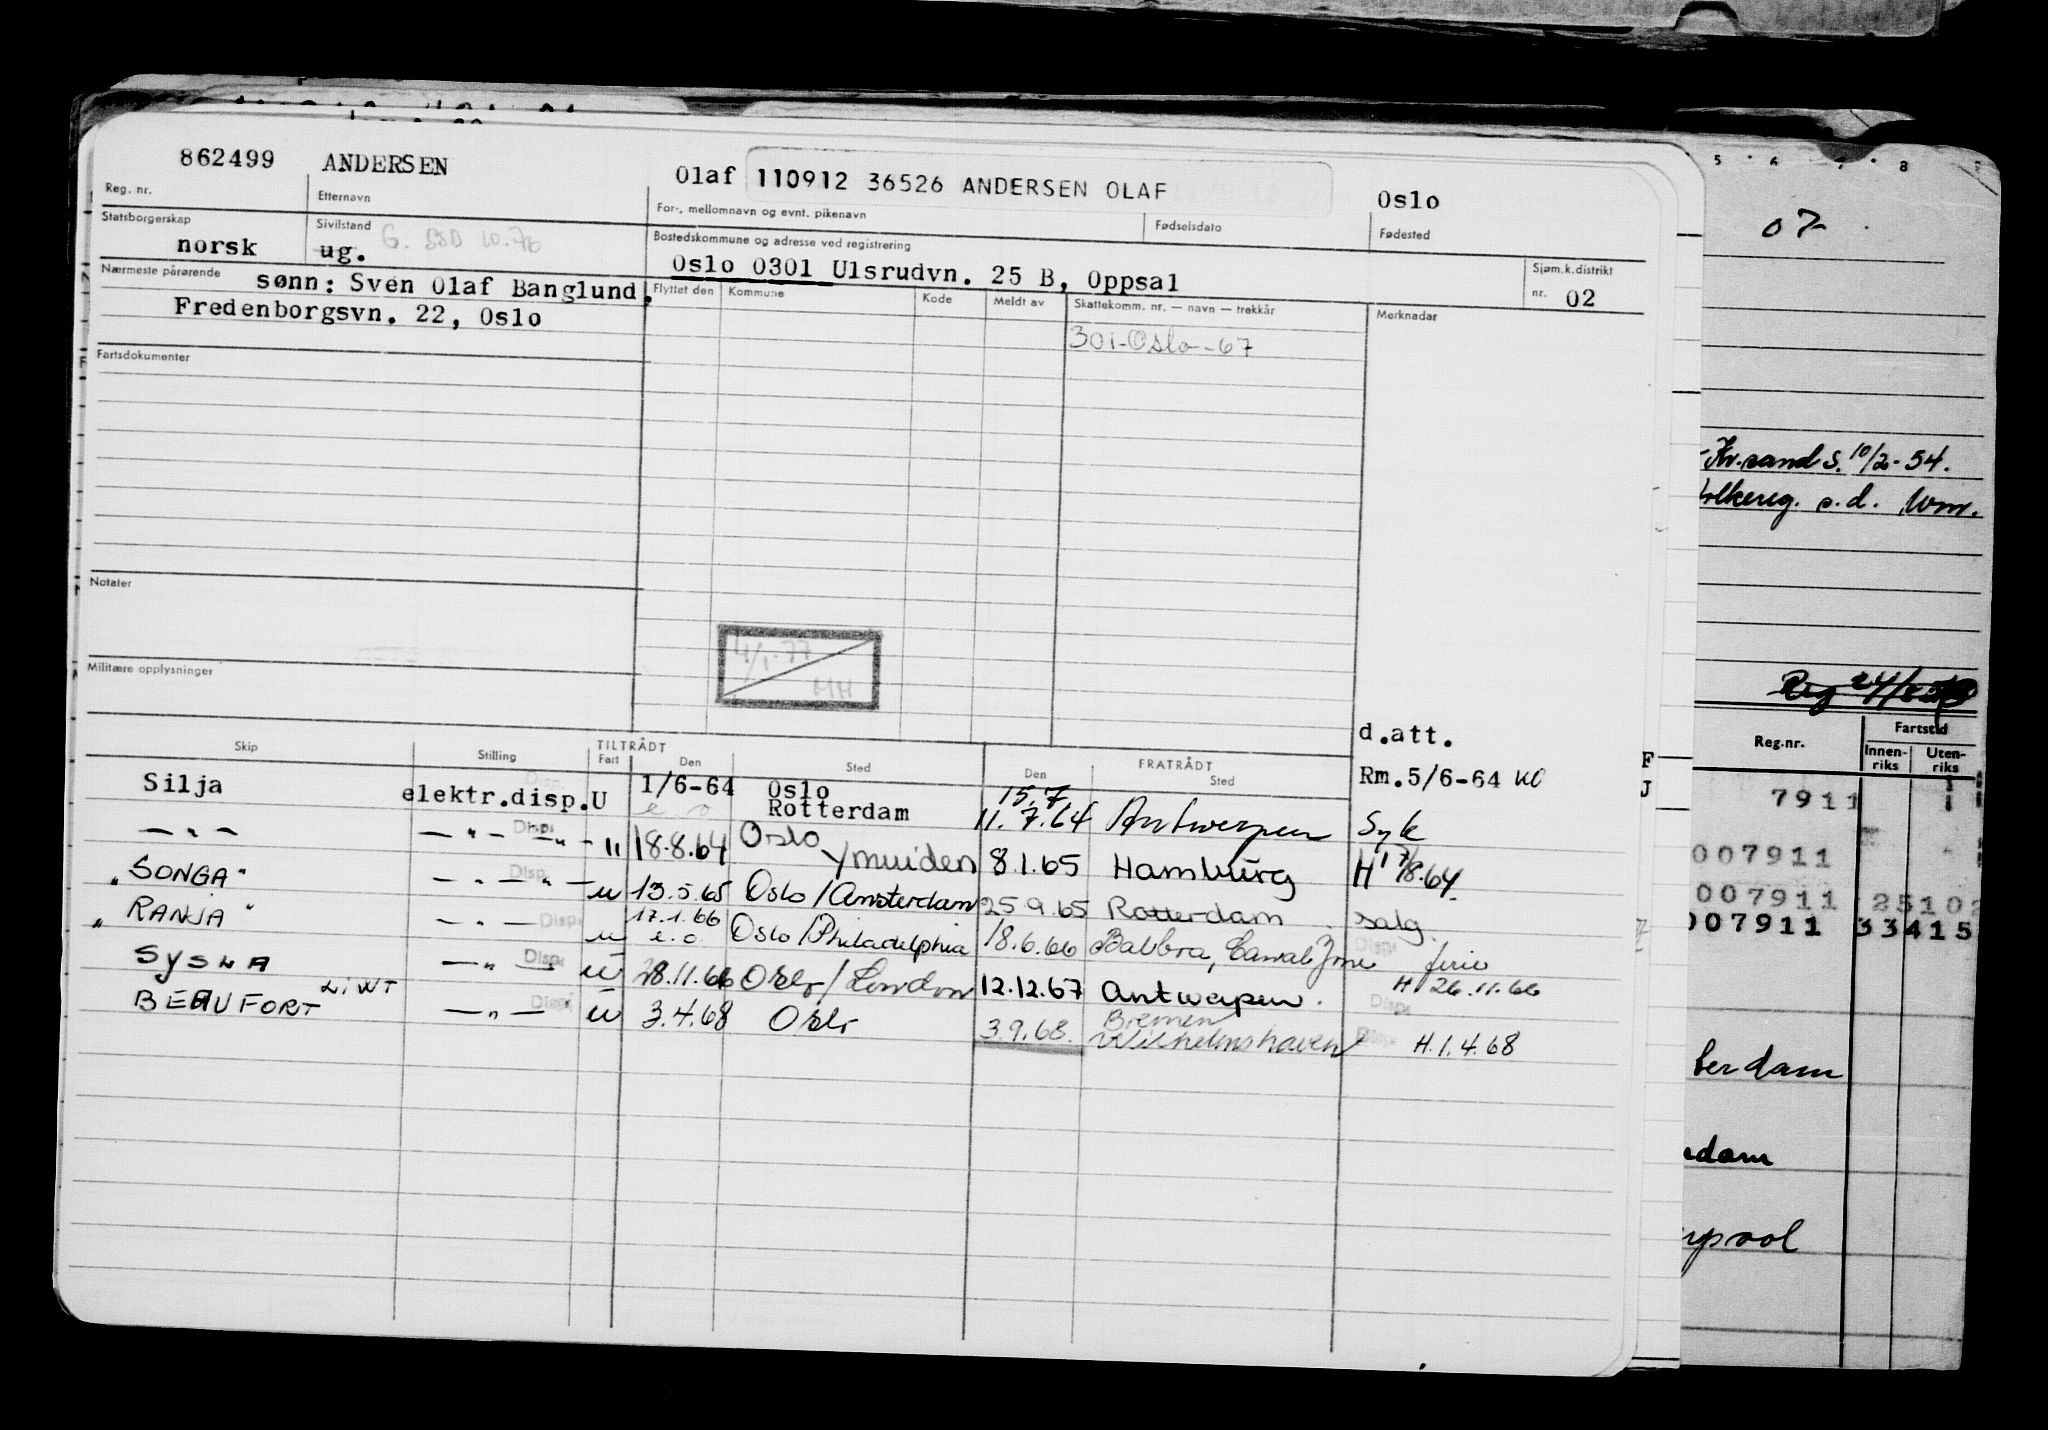 862499 ANDERSEN Olaf 110912 36526 ANDERSEN OLAF Oslo
Reg. nr. Etternavn For-, mellomnavn og evnt. pikenavn Fødselsdato Fødested
Statsborgerskap Sivilstand Bostedskommune og adresse ved registrering Sjøm.k.distrikt
norsk ug. G. 10.76 Oslo 0301 Ulsrudvn. 25 B, Oppsal nr. 02
Nærmeste pårørende sønn: Sven Olaf Banglund, Flyttet den Kommune Kode Meldt av Skattekomm. nr. — navn — trekkår Merknader
Fredenborgsvn. 22, Oslo
301-Oslo-67
Fartsdokumenter
Notater
4/1-77
HH
Militære opplysninger
d.att.
Skip Stilling TILTRÅDT Fart Den Sted FRATRÅDT Den Sted
Silja elektr.disp. U 1/6-64 Oslo Rotterdam 15.7 11.7.64 Antwerpen Rm.5/6-64 KO Syk
— " — — " — Disp. — " — " 18.8.64 Oslo Ymuiden 8.1.65 Hamburg H 17/8.64.
"SONGA" — " — " — Disp. u 13.5.65 Oslo/Amsterdam 25 9.65 Rotterdam salg.
"RANJA" — " — Disp. u 17.1.66 e.o. Oslo/Philadelphia 18.6.66 Balbra, Canal Zone ferie
SYSLA — " — Disp. u 28.11.66 Oslo/London 12.12.67 Antwerpen. H 26.11.66
BEAUFORT — " — Disp. u 3.4.68 Oslo 3.9.68. Bremen Wilhelmshaven H.1.4.68
07-
Kr.sand S. 10/2-54.
folkereg. s.d.
Reg
Reg.nr. Fartstid
Innen-riks Uten-riks
7911
007911
007911 25102
007911 33415
terdam
rdam